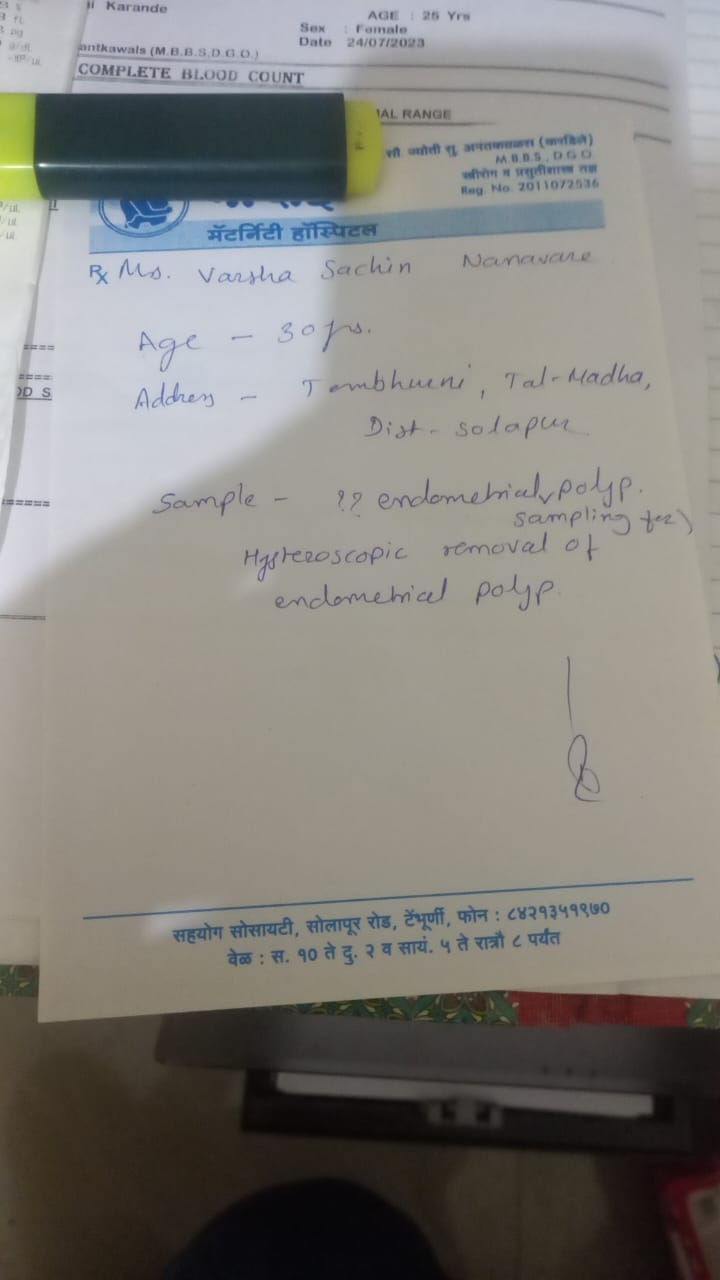 Karande
AGE : 25 Yrs
Sex : Female
Date 24/07/2023
antkawals (M.B.B.S,D.G.O.)
COMPLETE BLOOD COUNT
AL RANGE
सौ. ज्योती सु. अनंतकवळस (कारडिले)
M.B.B.S., D.G.O.
स्त्रीरोग व प्रसुतीशास्त्र तज्ञ
Reg. No. 2011072536
मॅटर्निटी हॉस्पिटल
Rx Ms. Varsha Sachin Nanavare
Age - 30 yrs.
Address - Tembhurni, Tal-Madha,
Dist - Solapur
Sample - ?? endometrial polyp.
sampling for
Hysteroscopic removal of
endometrical polyp.
सहयोग सोसायटी, सोलापूर रोड, टेंभूर्णी, फोन : ८४२१३५११७०
वेळ : स. १० ते दु. २ व सायं. ५ ते रात्रौ ८ पर्यंत